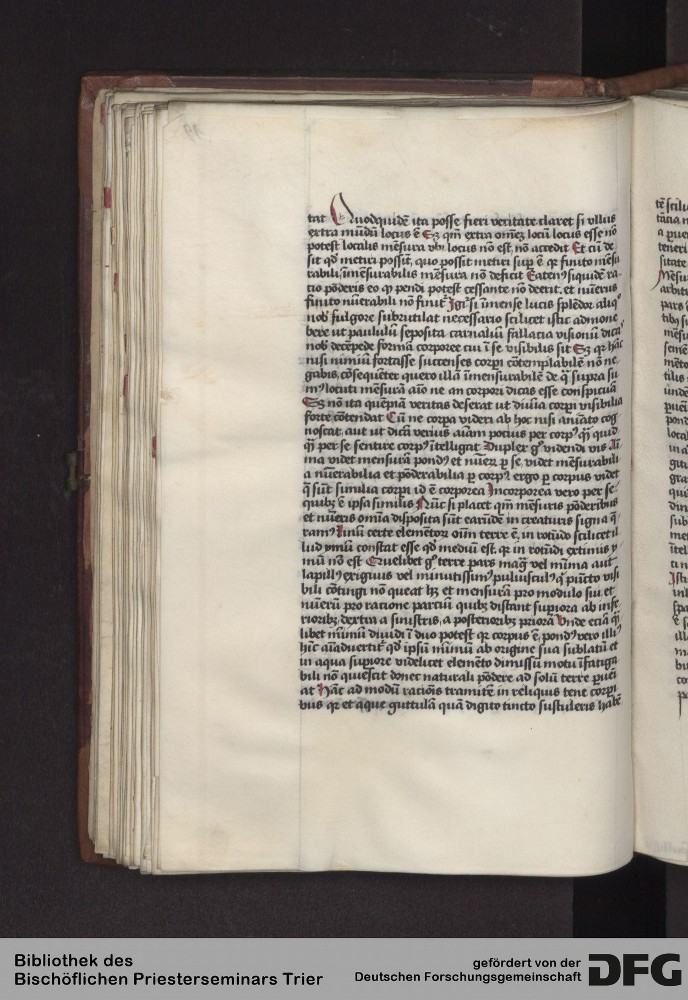 tat Quodquidē ita posse fieri veritate claret si vllus
extra mūdū locus ē Sꝫ qm̄ extra omnē locū locus esse nō
potest localis mēsura vbi locus nō est, nō accedit Et cū de
sit qd̛ metiri possit, quo possit metiri sup̄ ē qꝛ finito mēsu
rabili, īmēsurabilis mēsura nō deficit Eatenꝰ siquidē ra
cio pōderis eo ꝙ pendi potest cessante nō deerit, et nūerus
finito nūerabili nō finit̛ Igi̛ si īmense lucis splēdor aliqͦ
nob̛ fulgore subrutilat necessario scilicet istic admone
bere ut paululū seposita carnaliū fallacia visionū dica
nob̛ decēpede forma corporee cui ī se visibilis sit Sꝫ qꝛ hāc
nisi nimiū fortasse succenses corpi cōtemplabilē nō ne
gabis, cōsequēter quero illā īmensurabilē de q̄ supra su
mꝰ locuti mēsurā aīo ne an corpori dicas esse conspicuā
Sꝫ nō ita quēpiā veritas deserat ut diuīa corpi visibilia
forte cōtendat Cū ne corpa videri ab hoc nisi aīato cog
noscat, aut ut dicā verius aīam pocius per corpꝰ q̄ quid
q̄ per se sentire corpꝰ ītelligat Dupler gͦ videndi vis Aī
ma videt mensurā pondꝰ et nūerū p̄ se, videt mēsurabili
a nūerabilia et pōderabilia p̄ corpꝰ ergo p̄ corpus videt
q̄ sūt similia corpi id ē corporea Incorporea vero per se
quibꝫ ē ipsa similis Nūc si placet qm̄ mēsuris pōderibus
et nūeris omīa disposita sūt earūdē in creaturis signa q̄
ramꝰ Imū certe elemētorū oīm terre ē, in rotūdo scilicet il
lud ymū constat esse qd̛ mediū est, qꝛ in rotūdi extimis y
mū nō est Cuiuslibet gͦ terre pars magꝰ vel mīma aut
lapillꝰ exiguus vel minutissimꝰ puluisculꝰ q̄ pūcto visi
bili cōtingi nō queat hꝫ et mensurā pro modulo suī, et
nūerū pro ratione parciū quibꝫ distant supiora ab infe
rioribꝫ, dextra a sinistris, a posterioribꝫ priora Vnde eciā q̄
libet mīmū diuidi ī duo potest qꝛ corpus ē, pondꝰ vero illiꝰ
hīc aīaduertit̛ qd̛ ipsū mīmū ab origine sua sublatū et
in aqua supiore videlicet elemēto dimissū motu īfatiga
bili nō quiescit donec naturali pōdere ad solū terre pueī
at Hāc ad modū racioīs tramitē in reliquis tene corpi
bus qꝛ et aque guttulā quā digito tincto sustuleris habē
Bibliothek des
Bischöflichen Priesterseminars Trier
gefördert von der
Deutschen Forschungsgemeinschaft
DFG